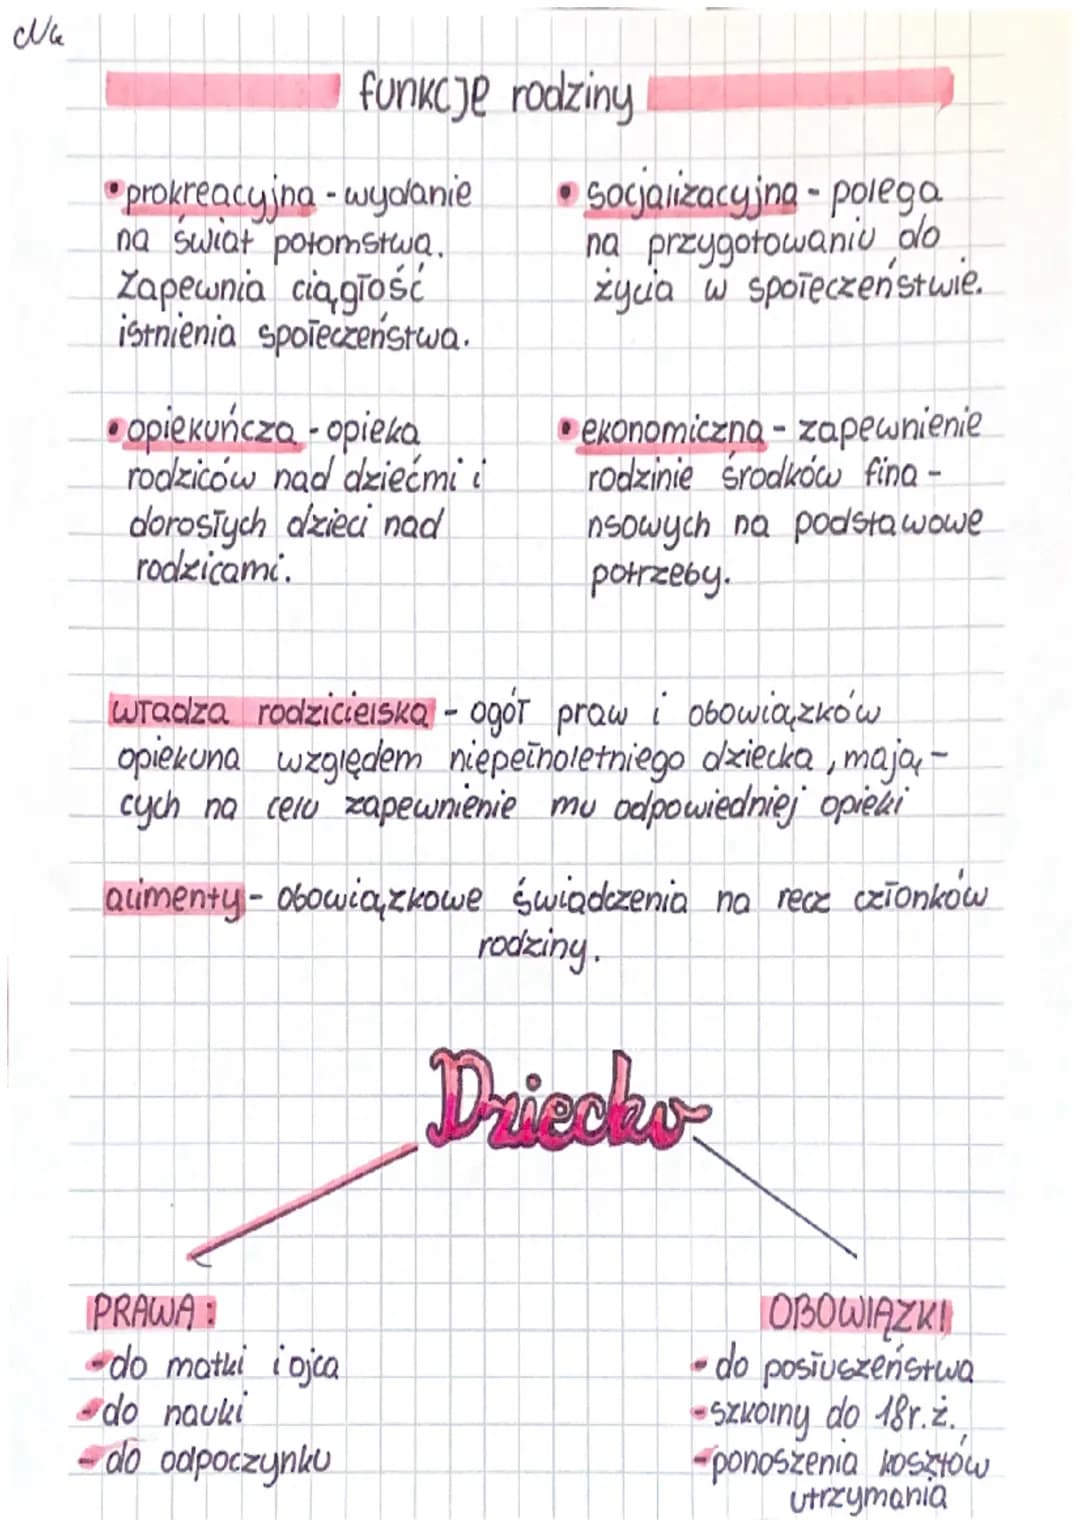 funkcje rodziny
• prokreacyjna - wydanie
na świat potomstwa.
Zapewnia ciągłość
istnienia społeczeństwa.
• socjalizacyjna - polega
na przygotowaniu do
życia w społeczeństwie.
• opiekuńcza - opieka
rodziców nad dziećmi i
dorosłych dzieci nad
rodzicami.
• ekonomiczna - zapewnienie
rodzinie środków fina -
nsowych na podstawowe
potrzeby.
władza rodzicielska - ogół praw i obowiązków
opiekuna względem niepełnoletniego dziecka, mają -
cych na celu zapewnienie mu odpowiedniej opieki
alimenty - obowiązkowe świadczenia na recz członków
rodziny.
Dziecko
PRAWA :
- do matki i ojca
- do nauki
- do odpoczynku
OBOWIĄZKI
- do posłuszeństwa
- szkolny do 18r.ż.
- ponoszenia kosztów
utrzymania